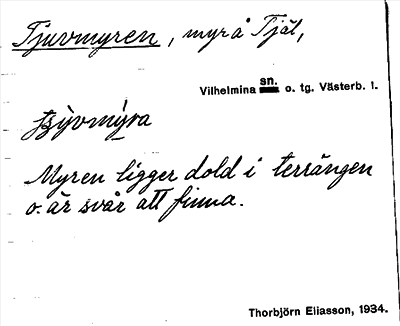 Tjuvmyren, myr å Tjäl,
Vilhelmina sn. o. tg. Västerb. l.
Myren ligger dold i terrängen
o. är svår att finna.
Thorbjörn Eliasson, 1934.